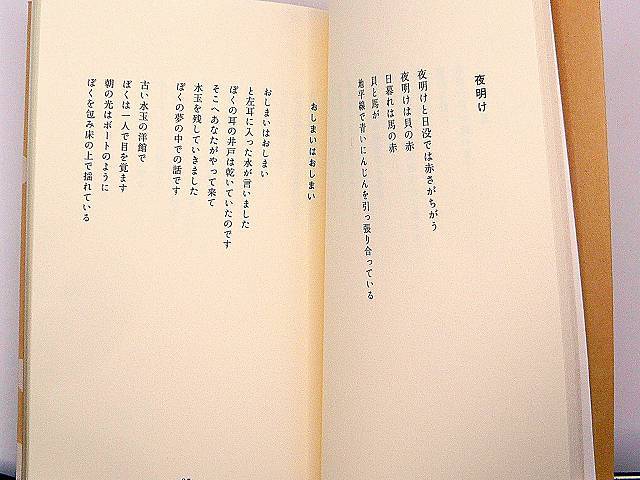 夜明け
夜明けと日没では赤さがちがう
夜明けは貝の赤
日暮れは馬の赤
貝と馬が
地平線で青いにんじんを引っ張り合っている
おしまいはおしまい
おしまいはおしまい
と左耳に入った水が言いました
ぼくの耳の井戸は乾いていたのです
そこへあなたがやって来て
水玉を残していきました
ぼくの夢の中での話です
古い水玉の洋館で
ぼくは一人で目を覚ます
朝の光はボートのように
ぼくを包み床の上で揺れている